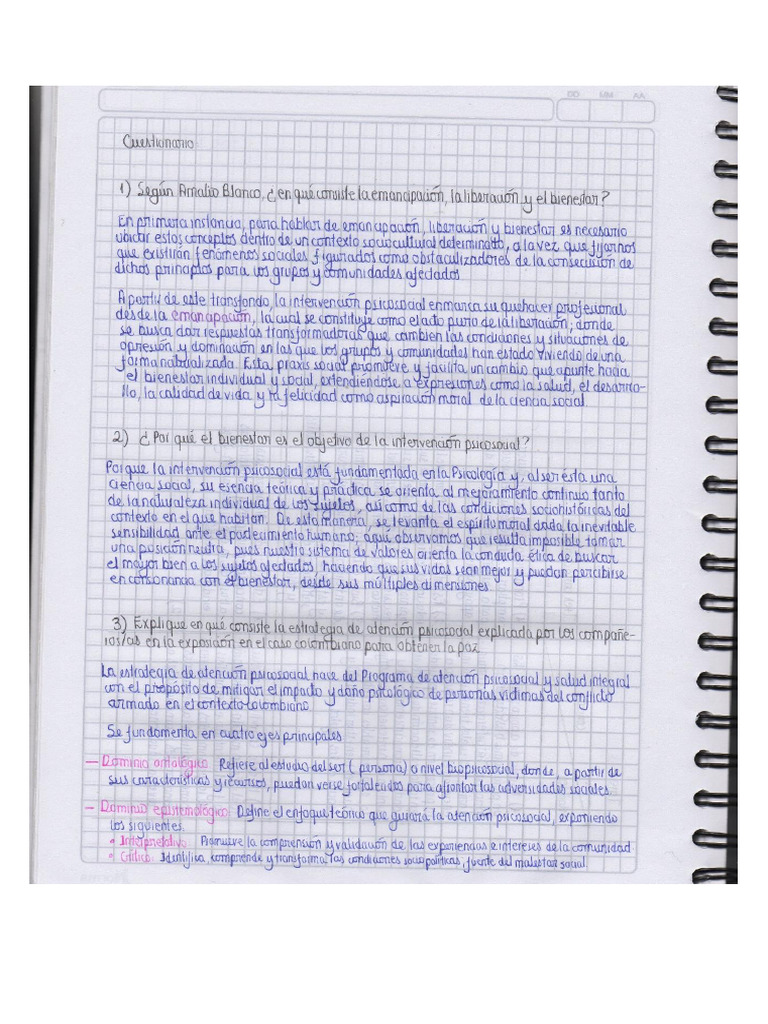 DD MM AA
Cuestionario
1) Según Amalio Blanco, ¿en qué consiste la emancipación, la liberación y el bienestar?
En primera instancia, para hablar de emancipación, liberación y bienestar es necesario
ubicar estos conceptos dentro de un contexto sociocultural determinado, a la vez que fijarnos
que existirán fenómenos sociales figurados como obstaculizadores de la consecusión de
dichos principios para los grupos y comunidades afectados
A partir de este transfondo, la intervención psicosocial enmarca su quehacer profesional
desde la emancipación, la cual se constituye como el acto puro de la liberación; donde
se busca dar respuestas transformadoras que cambien las condiciones y situaciones de
opresión y dominación en las que los grupos y comunidades han estado viviendo de una
forma naturalizada. Esta praxis social promueve y facilita un cambio que apunte hacia
el bienestar individual y social, extendiéndose a expresiones como la salud, el desarro-
llo, la calidad de vida y la felicidad como aspiración moral de la ciencia social.
2) ¿Por qué el bienestar es el objetivo de la intervención psicosocial?
Porque la intervención psicosocial está fundamentada en la Psicología y, al ser esta una
ciencia social, su esencia teórica y práctica se orienta al mejoramiento continuo tanto
de la naturaleza individual de los sujetos, así como de las condiciones sociohistóricas del
contexto en el que habitan. De esta manera, se levanta el espíritu moral dada la inevitable
sensibilidad ante el padecimiento humano; aquí observamos que resulta imposible tomar
una posición neutra, pues nuestro sistema de valores orienta la conducta ética de buscar
el mayor bien a los sujetos afectados, haciendo que sus vidas sean mejor y puedan percibirse
en consonancia con el bienestar, desde sus múltiples dimensiones.
3) Explique en qué consiste la estrategia de atención psicosocial explicada por los compañe-
ros/as en la exposición en el caso colombiano para obtener la paz
La estrategia de atención psicosocial nace del Programa de atención psicosocial y salud integral
con el propósito de mitigar el impacto y daño psicológico de personas víctimas del conflicto
armado en el contexto colombiano
Se fundamenta en cuatro ejes principales
— Dominio ontológico: Refiere al estudio del ser (persona) a nivel biopsicosocial, donde, a partir de
sus características y recursos, puedan verse fortalecidos para afrontar las adversidades sociales.
— Dominio epistemológico: Define el enfoque teórico que guiará la atención psicosocial, exponiendo
los siguientes:
• Interpretativo: Promueve la comprensión y validación de las experiencias e intereses de la comunidad
• Crítico: Identifica, comprende y transforma las condiciones sociopolíticas, fuente del malestar social.